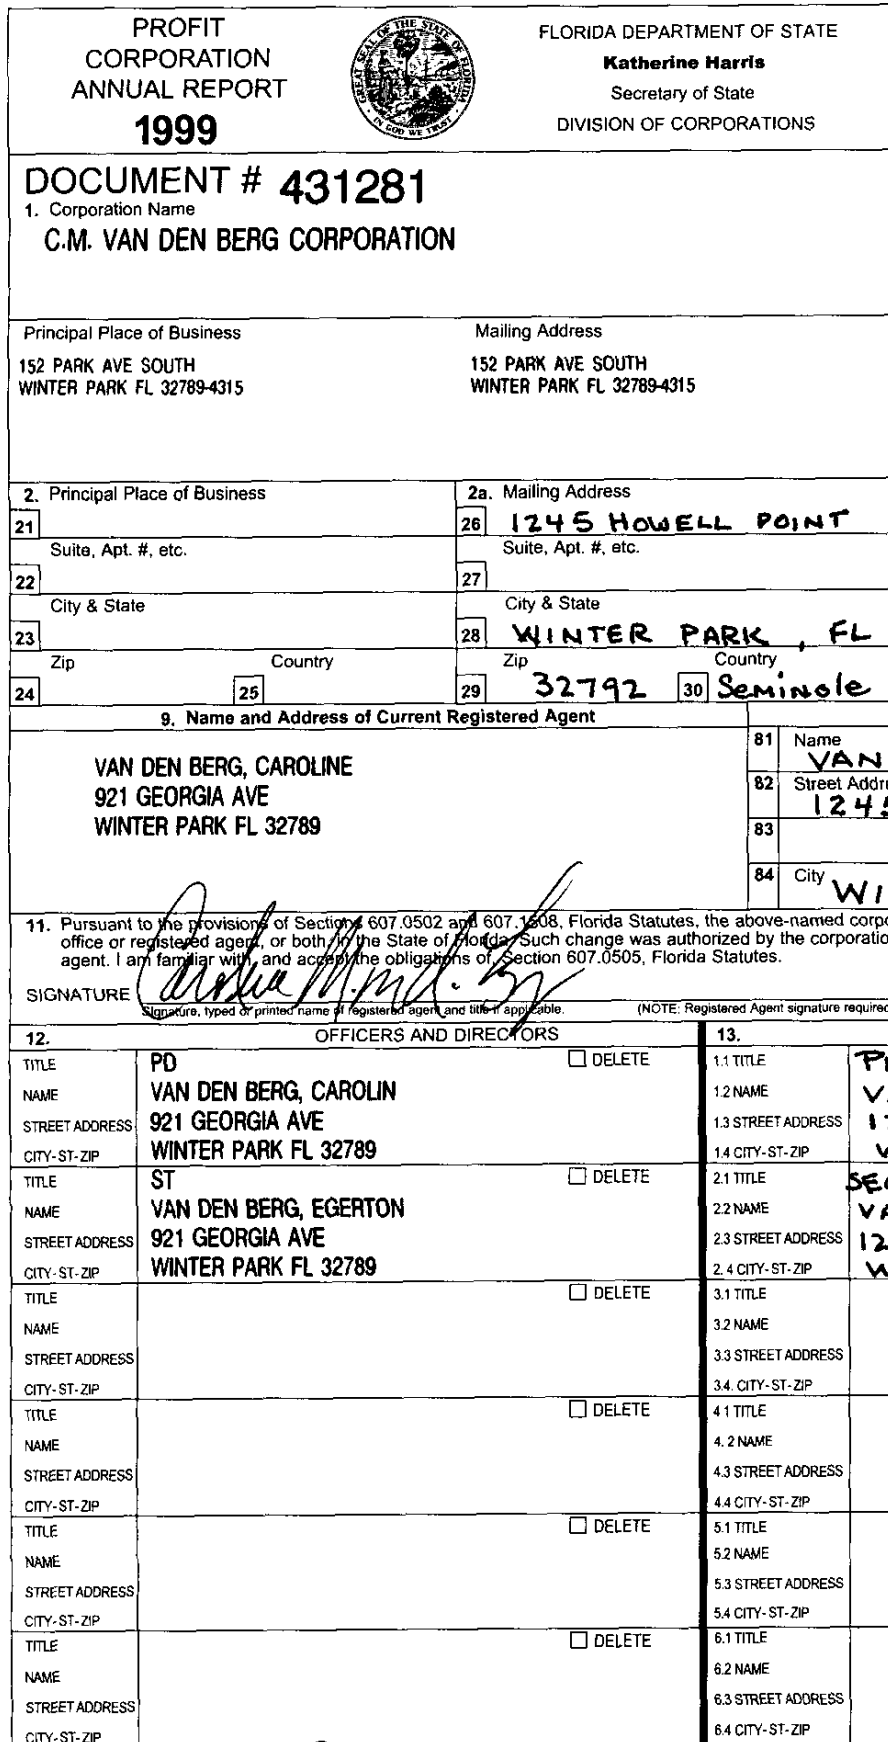 PROFIT
CORPORATION
ANNUAL REPORT
1999
GREAT SEAL OF THE STATE OF FLORIDA
IN GOD WE TRUST
FLORIDA DEPARTMENT OF STATE
Katherine Harris
Secretary of State
DIVISION OF CORPORATIONS
DOCUMENT # 431281
1. Corporation Name
C.M. VAN DEN BERG CORPORATION
Principal Place of Business
152 PARK AVE SOUTH
WINTER PARK FL 32789-4315
Mailing Address
152 PARK AVE SOUTH
WINTER PARK FL 32789-4315
2. Principal Place of Business
21
Suite, Apt. #, etc.
22
City & State
23
Zip Country
24 25
2a. Mailing Address
26 1245 HOWELL POINT
Suite, Apt. #, etc.
27
City & State
28 WINTER PARK, FL
Zip Country
29 32792 30 Seminole
9. Name and Address of Current Registered Agent
VAN DEN BERG, CAROLINE
921 GEORGIA AVE
WINTER PARK FL 32789
81 Name
VAN
82 Street Addr
1245
83
84 City WI
11. Pursuant to the provisions of Sections 607.0502 and 607.1508, Florida Statutes, the above-named corpo
office or registered agent, or both, in the State of Florida. Such change was authorized by the corporatio
agent. I am familiar with, and accept the obligations of, Section 607.0505, Florida Statutes.
SIGNATURE
Signature, typed or printed name of registered agent and title if applicable. (NOTE: Registered Agent signature required
12. OFFICERS AND DIRECTORS 13.
TITLE PD DELETE
NAME VAN DEN BERG, CAROLIN
STREET ADDRESS 921 GEORGIA AVE
CITY-ST-ZIP WINTER PARK FL 32789
1.1 TITLE
1.2 NAME
1.3 STREET ADDRESS
1.4 CITY-ST-ZIP
TITLE ST DELETE
NAME VAN DEN BERG, EGERTON
STREET ADDRESS 921 GEORGIA AVE
CITY-ST-ZIP WINTER PARK FL 32789
2.1 TITLE SEC
2.2 NAME VA
2.3 STREET ADDRESS 12
2.4 CITY-ST-ZIP W
TITLE DELETE
NAME
STREET ADDRESS
CITY-ST-ZIP
3.1 TITLE
3.2 NAME
3.3 STREET ADDRESS
3.4. CITY-ST-ZIP
TITLE DELETE
NAME
STREET ADDRESS
CITY-ST-ZIP
4.1 TITLE
4.2 NAME
4.3 STREET ADDRESS
4.4 CITY-ST-ZIP
TITLE DELETE
NAME
STREET ADDRESS
CITY-ST-ZIP
5.1 TITLE
5.2 NAME
5.3 STREET ADDRESS
5.4 CITY-ST-ZIP
TITLE DELETE
NAME
STREET ADDRESS
CITY-ST-ZIP
6.1 TITLE
6.2 NAME
6.3 STREET ADDRESS
6.4 CITY-ST-ZIP